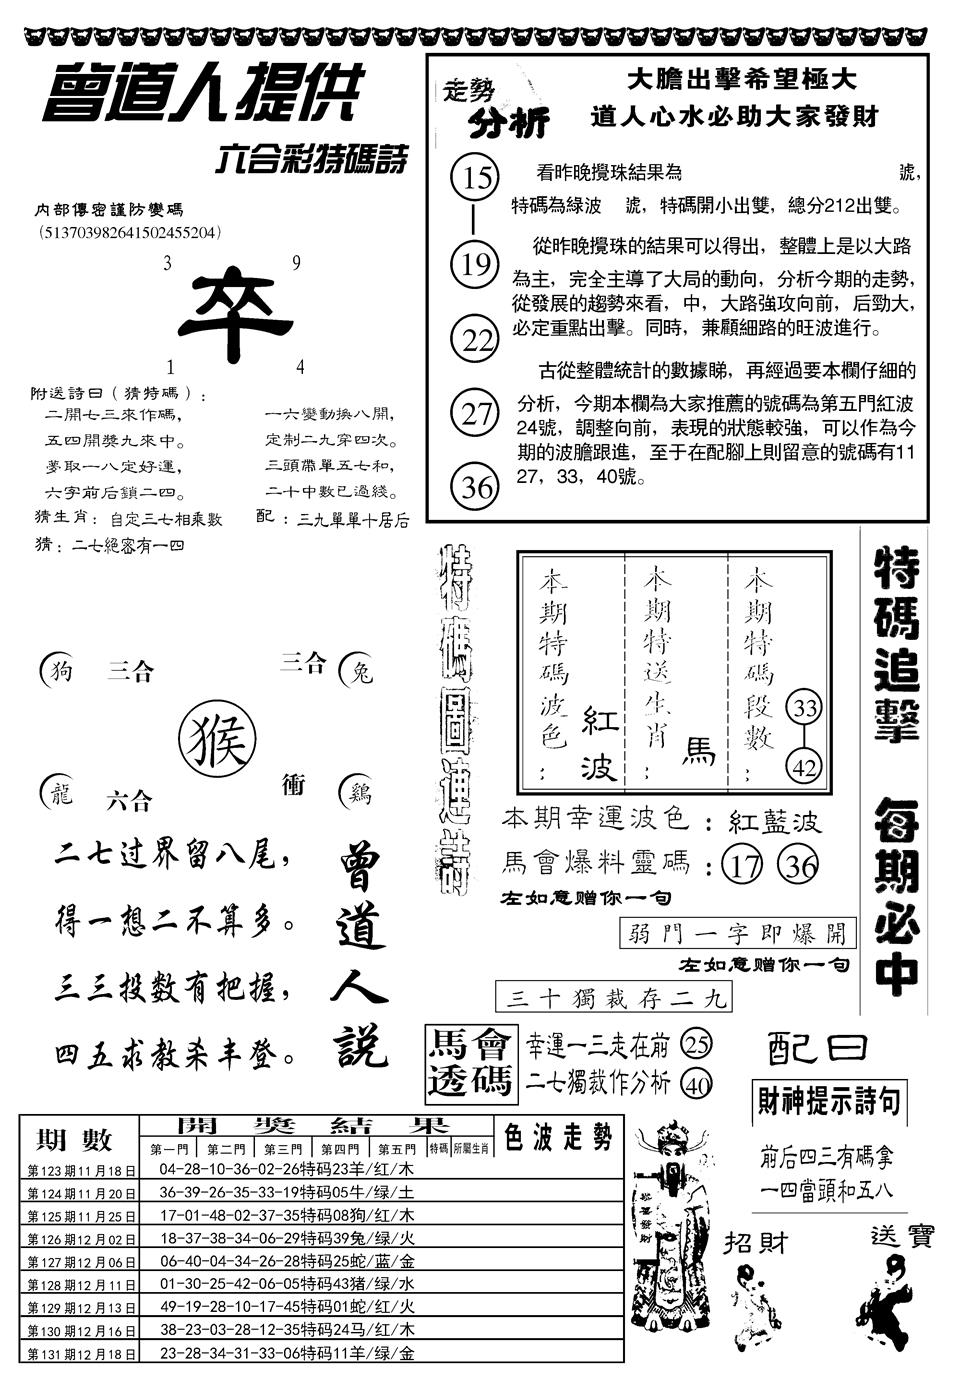 曾道人提供
六合彩特碼詩
内部傳密謹防變碼
（513703982641502455204）
3 9
卒
1 4
附送詩曰（猜特碼）：
二開七三來作碼，
五四開獎九來中。
夢取一八定好運，
六字前后鎖二四。
一六變動換八開，
定制二九穿四次。
三頭帶單五七和，
二十中數已過綫。
猜生肖：自定三七相乘數
配：三九單單十居后
猜：二七絕密有一四
走勢
分析
大膽出擊希望極大
道人心水必助大家發財
15
19
22
27
36
看昨晚攪珠結果為 號，
特碼為綠波 號，特碼開小出雙，總分212出雙。
從昨晚攪珠的結果可以得出，整體上是以大路
為主，完全主導了大局的動向，分析今期的走勢，
從發展的趨勢來看，中，大路強攻向前，后勁大，
必定重點出擊。同時，兼顧細路的旺波進行。
古從整體統計的數據睇，再經過要本欄仔細的
分析，今期本欄為大家推薦的號碼為第五門紅波
24號，調整向前，表現的狀態較強，可以作為今
期的波膽跟進，至于在配腳上則留意的號碼有11
27，33，40號。
狗 三合 三合 兔
猴
龍 六合 衝 鷄
二七过界留八尾，
得一想二不算多。
三三投数有把握，
四五求教杀丰登。
曾道人説
特碼圖連詩
本期特碼波色：
紅波
本期特送生肖：
馬
本期特碼段數：
33
42
本期幸運波色：紅藍波
馬會爆料靈碼：17 36
左如意赠你一句
弱門一字即爆開
左如意赠你一句
三十獨裁存二九
特碼追擊 每期必中
馬會透碼
幸運一三走在前 25
二七獨裁作分析 40
配曰
財神提示詩句
前后四三有碼拿
一四當頭和五八
招財
送寶
期數 開獎結果 色波走勢
第一門 第二門 第三門 第四門 第五門 特碼 所屬生肖
第123期11月18日 04-28-10-36-02-26特码23羊/红/木
第124期11月20日 36-39-26-35-33-19特码05牛/绿/土
第125期11月25日 17-01-48-02-37-35特码08狗/红/木
第126期12月02日 18-37-38-34-06-29特码39兔/绿/火
第127期12月06日 06-40-04-34-26-28特码25蛇/蓝/金
第128期12月11日 01-30-25-42-06-05特码43猪/绿/水
第129期12月13日 49-19-28-10-17-45特码01蛇/红/火
第130期12月16日 38-23-03-28-12-35特码24马/红/木
第131期12月18日 23-28-34-31-33-06特码11羊/绿/金